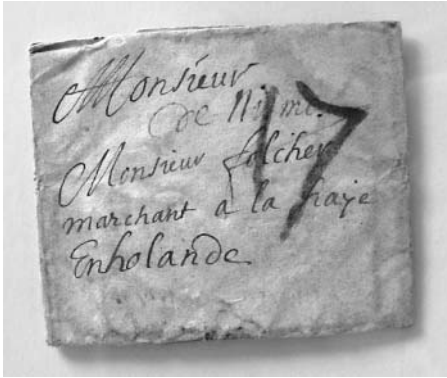 Monsieur
de Nismes
Monsieur folcher
marchant a la haye
Enholande
17